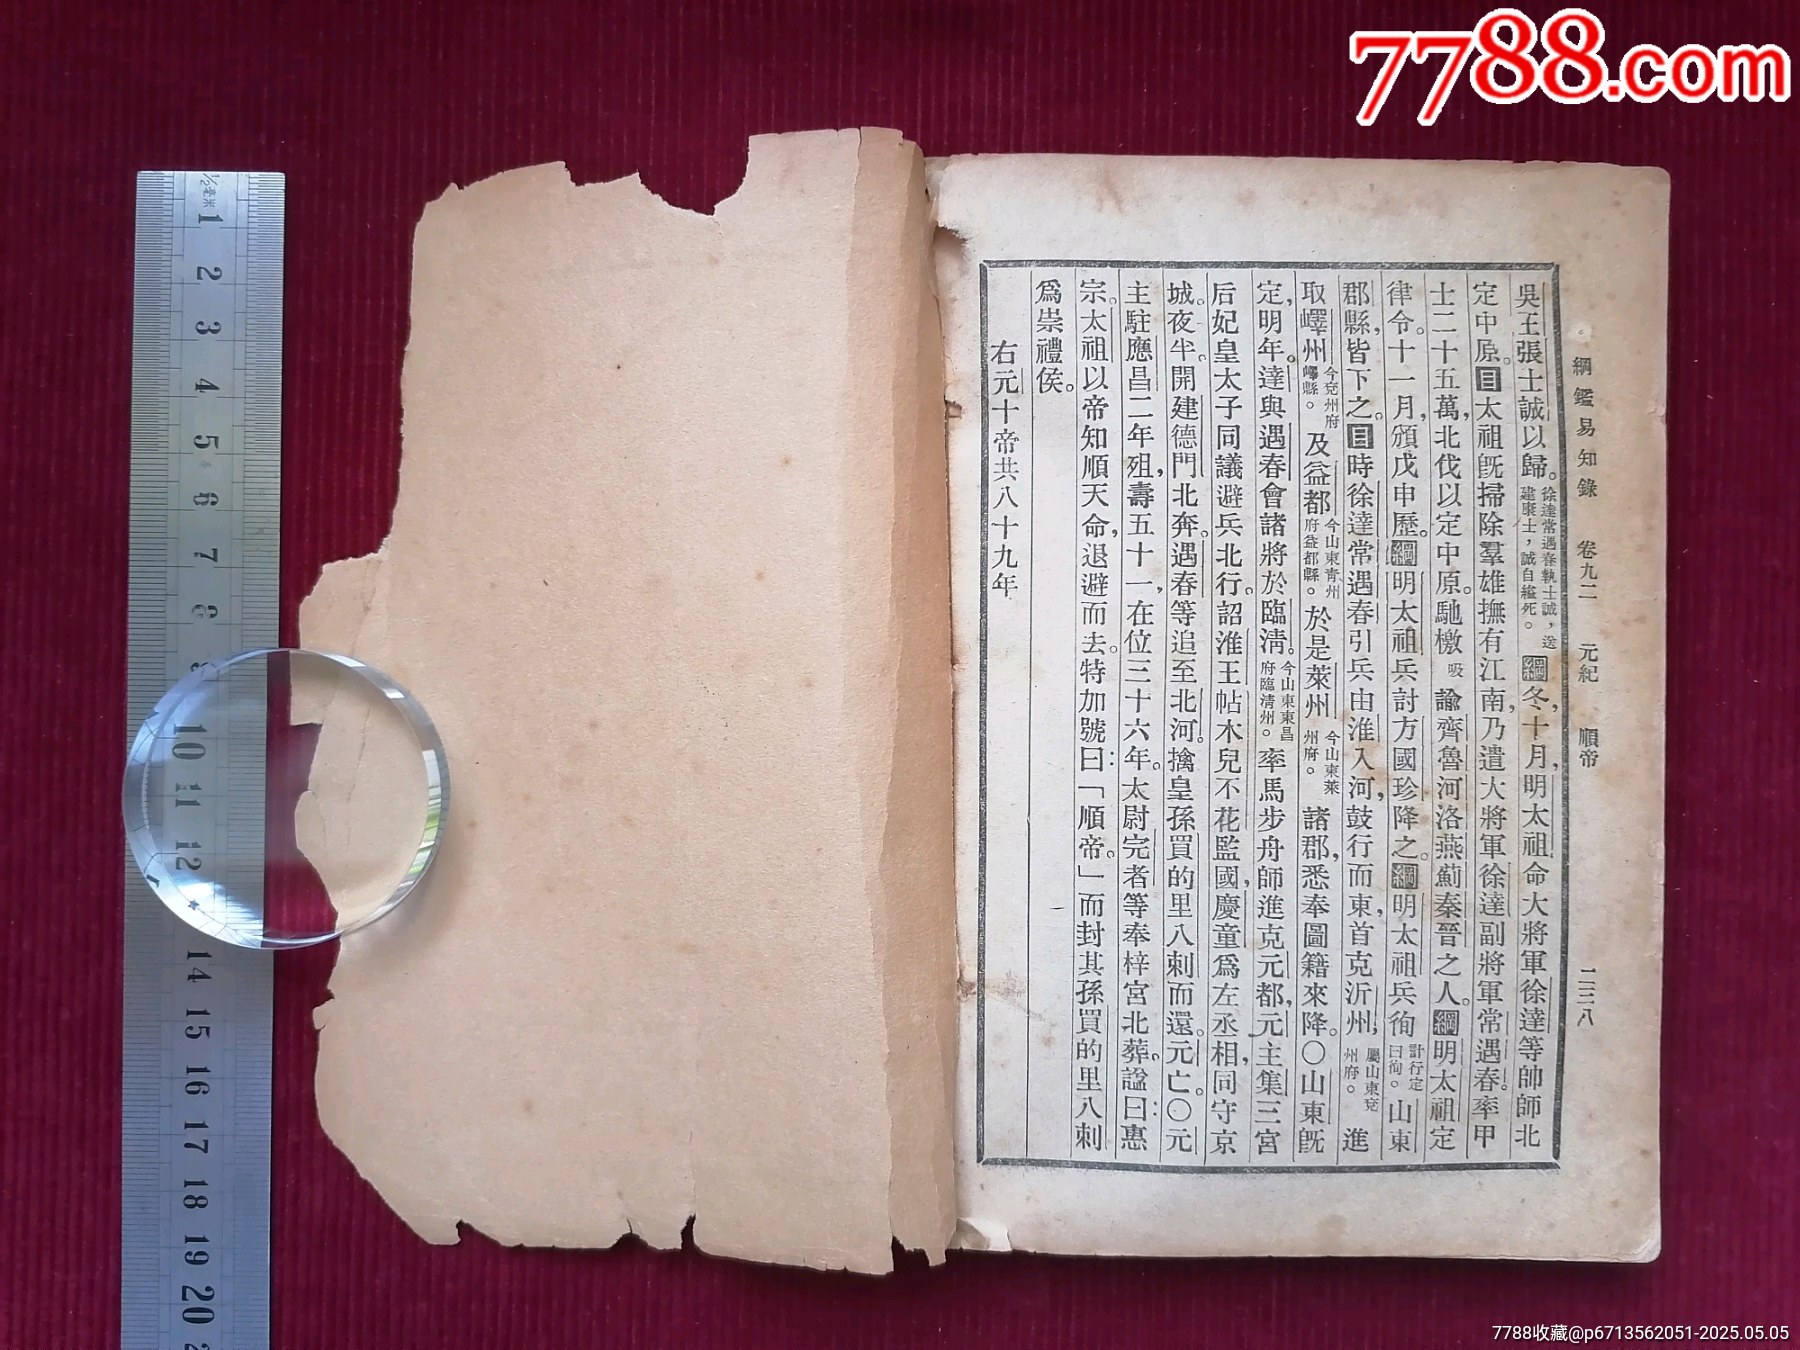 7788.com
綱鑑易知錄 卷九二 元紀 順帝 二三八
吳王張士誠以歸。徐達常遇春執士誠，送建康士，誠自縊死。綱冬，十月，明太祖命大將軍徐達等帥師北
定中原。目太祖旣掃除羣雄撫有江南，乃遣大將軍徐達副將軍常遇春。率甲
士二十五萬，北伐以定中原。馳檄吸諭齊魯河洛燕薊秦晉之人。綱明太祖定
律令。十一月，頒戊申歷。綱明太祖兵討方國珍降之。綱明太祖兵徇計行定曰徇。山東
郡縣，皆下之。目時徐達常遇春引兵由淮入河，鼓行而東，首克沂州，屬山東兗州府。進
取嶧州今兗州府嶧縣。及益都今山東青州府益都縣。於是萊州今山東萊州府。諸郡，悉奉圖籍來降。〇山東旣
定，明年。達與遇春會諸將於臨淸。今山東東昌府臨淸州。率馬步舟師進克元都，元主集三宮
后妃皇太子同議避兵北行。詔淮王帖木兒不花監國，慶童爲左丞相，同守京
城。夜半。開建德門北奔。遇春等追至北河。擒皇孫買的里八刺而還。元亡。〇元
主駐應昌二年殂，壽五十一，在位三十六年。太尉完者等奉梓宮北葬。諡曰：惠
宗。太祖以帝知順天命，退避而去。特加號曰：「順帝。」而封其孫買的里八刺
爲崇禮侯。
右元十帝共八十九年
½毫米
1
2
3
4
5
6
7
8
9
10
11
12
14
15
16
17
18
19
20
7788收藏@p6713562051-2025.05.05